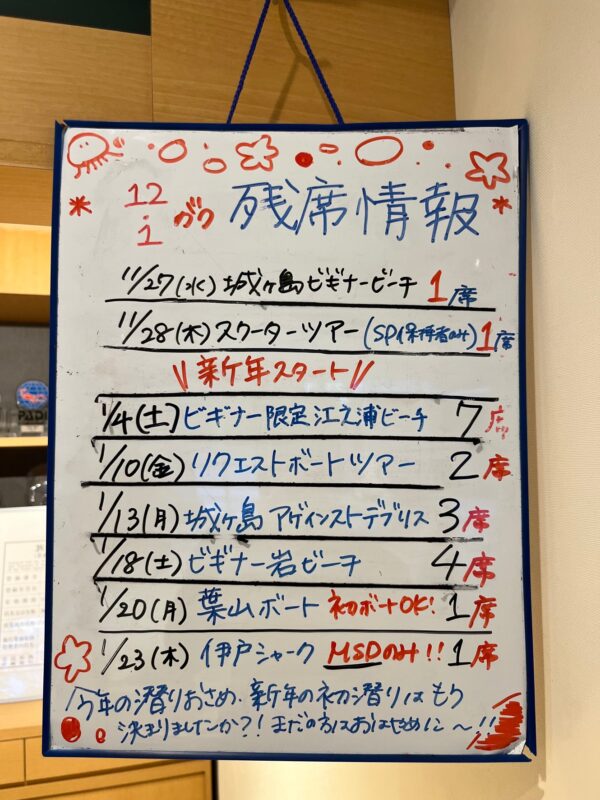 12
・
1
ガツ 残席情報
11/27(水) 城ヶ島ビギナービーチ 1席
11/28(木) スクーターツアー(SP保持者のみ) 1席
\\ 新年スタート //
1/4(土) ビギナー限定 江之浦ビーチ 7席
1/10(金) リクエストボートツアー 2席
1/13(月) 城ヶ島 アゲインストデブリス 3席
1/18(土) ビギナー岩ビーチ 4席
1/20(月) 葉山ボート 初ボートOK! 1席
1/23(木) 伊戸シャーク MSDのみ!! 1席
今年の潜りおさめ、新年の初潜りはもう
決まりましたか?! まだの方はおはやめに〜!!
PADI